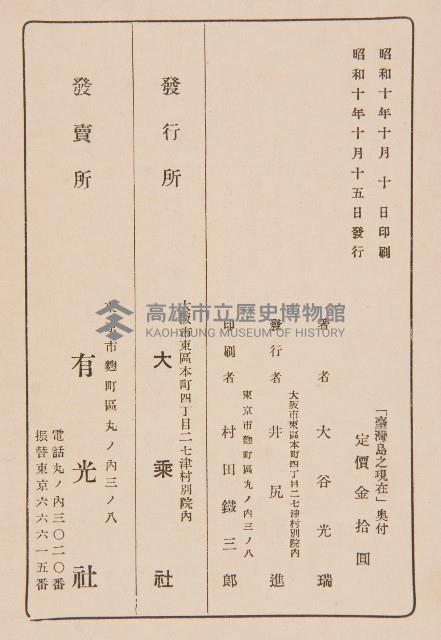 昭和十年十月十日印刷
昭和十年十月十五日發行
「臺灣島之現在」奥付
定價金拾圓
著者 大谷光瑞
大阪市東區本町四丁目二七津村別院內
發行者 井尻進
東京市麴町區丸ノ內三ノ八
印刷者 村田鐵三郎
發行所
大阪市東區本町四丁目二七津村別院內
大乘社
發賣所
東京市麴町區丸ノ內三ノ八
有光社
電話丸ノ內三〇二〇番
振替東京六六六一五番
高雄市立歷史博物館
KAOHSIUNG MUSEUM OF HISTORY